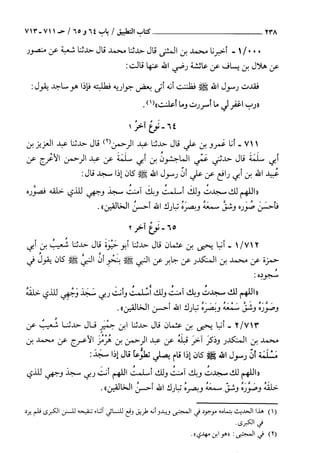 ٢٣٨ ــــــــ كتاب التطبيق / باب ٦٤ و ٦٥ / حـ ٧١١ - ٧١٣
١/٠٠٠ - أخبرنا محمد بن المثنى قال حدثنا محمد قال حدثنا شعبة عن منصور
عن هلال بن يساف عن عائشة رضي الله عنها قالت:
فقدت رسول الله ﷺ فظننت أنه أتى بعض جواريه فطلبته فإذا هو ساجد يقول:
«رب اغفر لي ما أسررت وما أعلنت»(١).
٦٤ - نَوعٌ آخرُ ١
٧١١ - أنا عَمرو بن علي قال حدثنا عبد الرحمن(٢) قال حدثنا عبد العزيز بن
أبي سَلَمَةَ قال حدثني عَمّي الماجشونُ بن أبي سَلَمَةَ عن عبد الرحمن الأعْرج عن
عُبيد الله بن أبي رافع عن علي أنَّ رسول الله ﷺ كان إذا سجد قال:
«اللهم لك سجدتُ ولكَ أسلمتُ وبكَ آمنتُ سجدَ وجهي للذي خلقه فصوَّره
فأحسَنَ صُوَره وشقَّ سمعَهُ وبصرَهُ تبارك الله أحسنُ الخالقين».
٦٥ - نَوعٌ آخر ٢
١/٧١٢ - أنبا يحيى بن عثمان قال حدثنا أبو حَيْوَةَ قال حدثنا شُعيبٌ بن أبي
حمزة عن محمد بن المنكدر عن جابر عن النبي ﷺ بِنَحْوِ أنَّ النبيَّ ﷺ كان يقولُ في
سُجوده:
«اللهم لك سجدتُ وبك آمنتُ ولك أسْلَمتُ وأنتَ ربي سَجَدَ وَجْهي للذي خلقَهُ
وصَوَّرَهُ وشَقَّ سَمْعَهُ وبَصَرَهُ تبارك الله أحسن الخالقين».
٢/٧١٣ - أنبا يحيى بن عثمان قال حدثنا ابن حِمْيَرٍ قال حدثنا شعيبٌ عن
محمد بن المنكدر وذكرَ آخرَ قبلَهُ عن عبد الرحمن بن هُرْمُزَ الأعرج عن محمد بن
مَسْلَمَةَ أنَّ رسولَ الله ﷺ كان إذا قام يصلي تطوُّعاً قال إذا سجَدَ:
«اللهم لك سجدتُ وبك آمنتُ ولك أسلمتُ اللهم أنتَ ربي سجدَ وجهي للذي
خلقَهُ وصَوَّرَهُ وشقَّ سمعَهُ وبصرَهُ تبارك الله أحسنُ الخالقين».
(١) هذا الحديث بتمامه موجود في المجتبى ويبدو أنه طريق وقع للنسائي أثناء تنقيحه للسنن الكبرى فلم يرد
في الكبرى.
(٢) في المجتبى: «هو ابن مهدي».